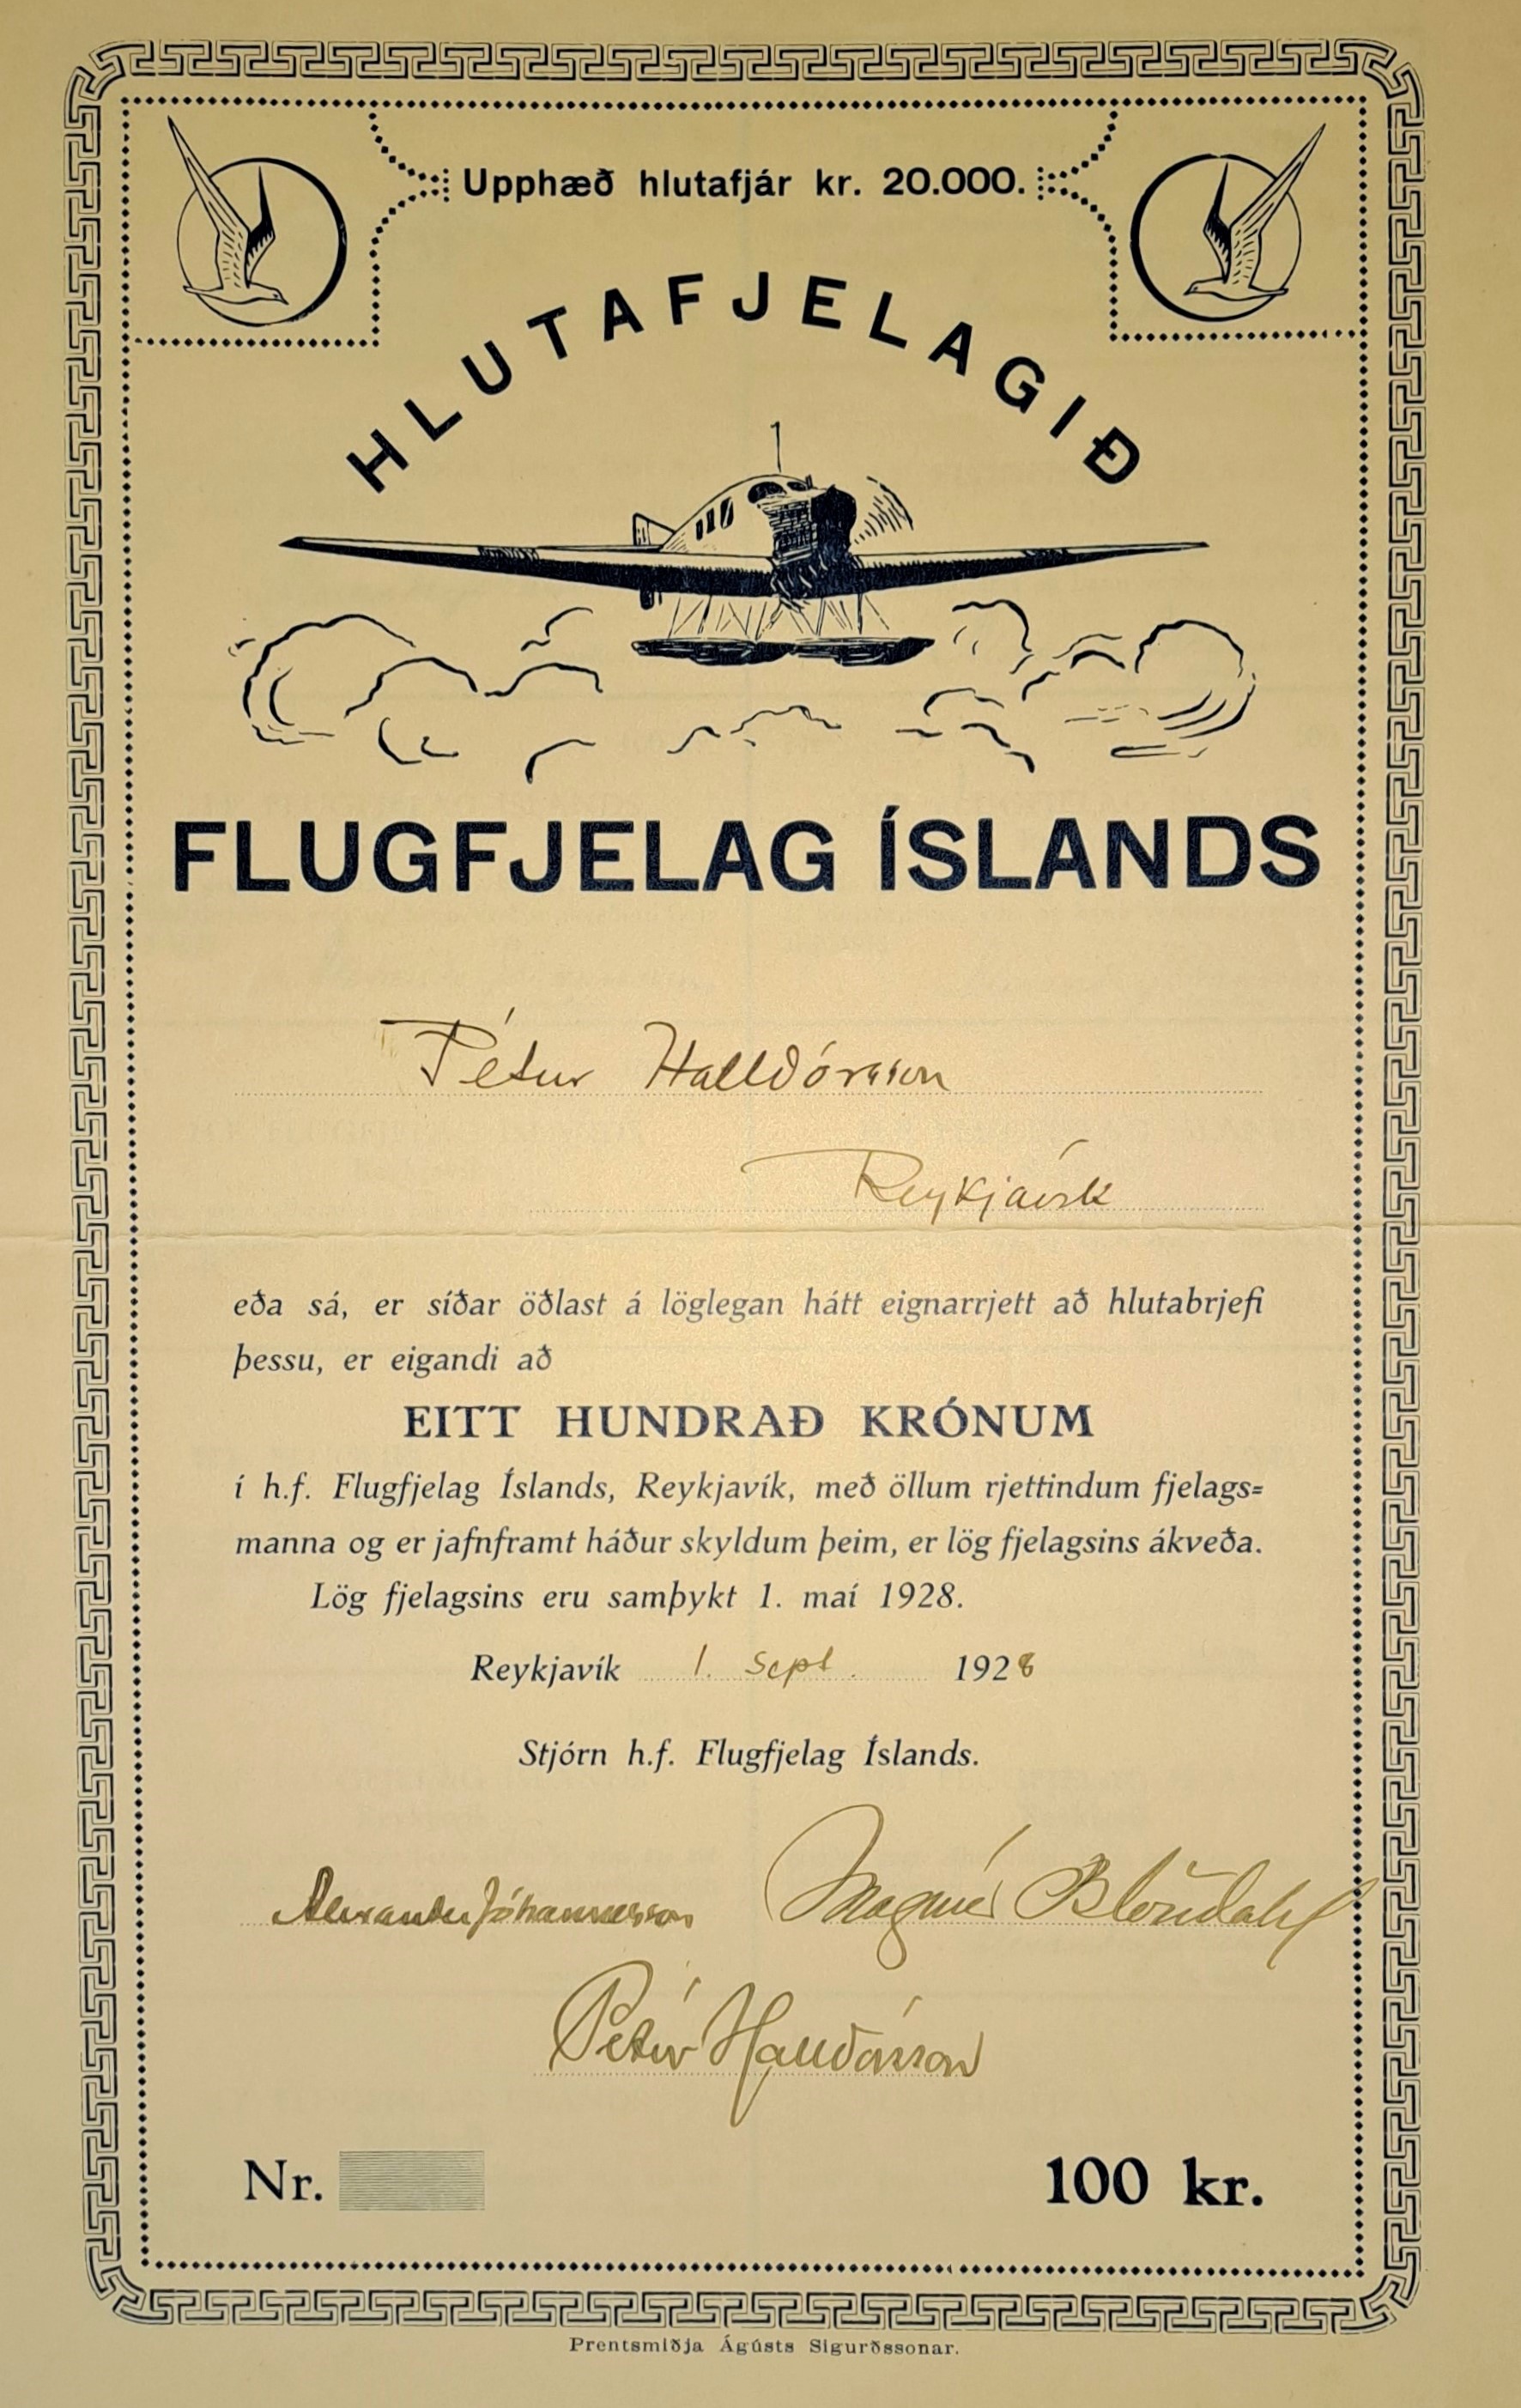 Upphæð hlutafjár kr. 20.000.
HLUTAFJELAGIÐ
FLUGFJELAG ÍSLANDS
Pétur Halldórsson
Reykjavík
eða sá, er síðar öðlast á löglegan hátt eignarrjett að hlutabrjefi
þessu, er eigandi að
EITT HUNDRAÐ KRÓNUM
í h.f. Flugfjelag Íslands, Reykjavík, með öllum rjettindum fjelags=
manna og er jafnframt háður skyldum þeim, er lög fjelagsins ákveða.
Lög fjelagsins eru samþykt 1. maí 1928.
Reykjavík 1. Sept. 1928
Stjórn h.f. Flugfjelag Íslands.
Alexander Jóhannesson Magnús Blöndahl
Pétur Halldórsson
Nr. 100 kr.
Prentsmiðja Ágústs Sigurðssonar.